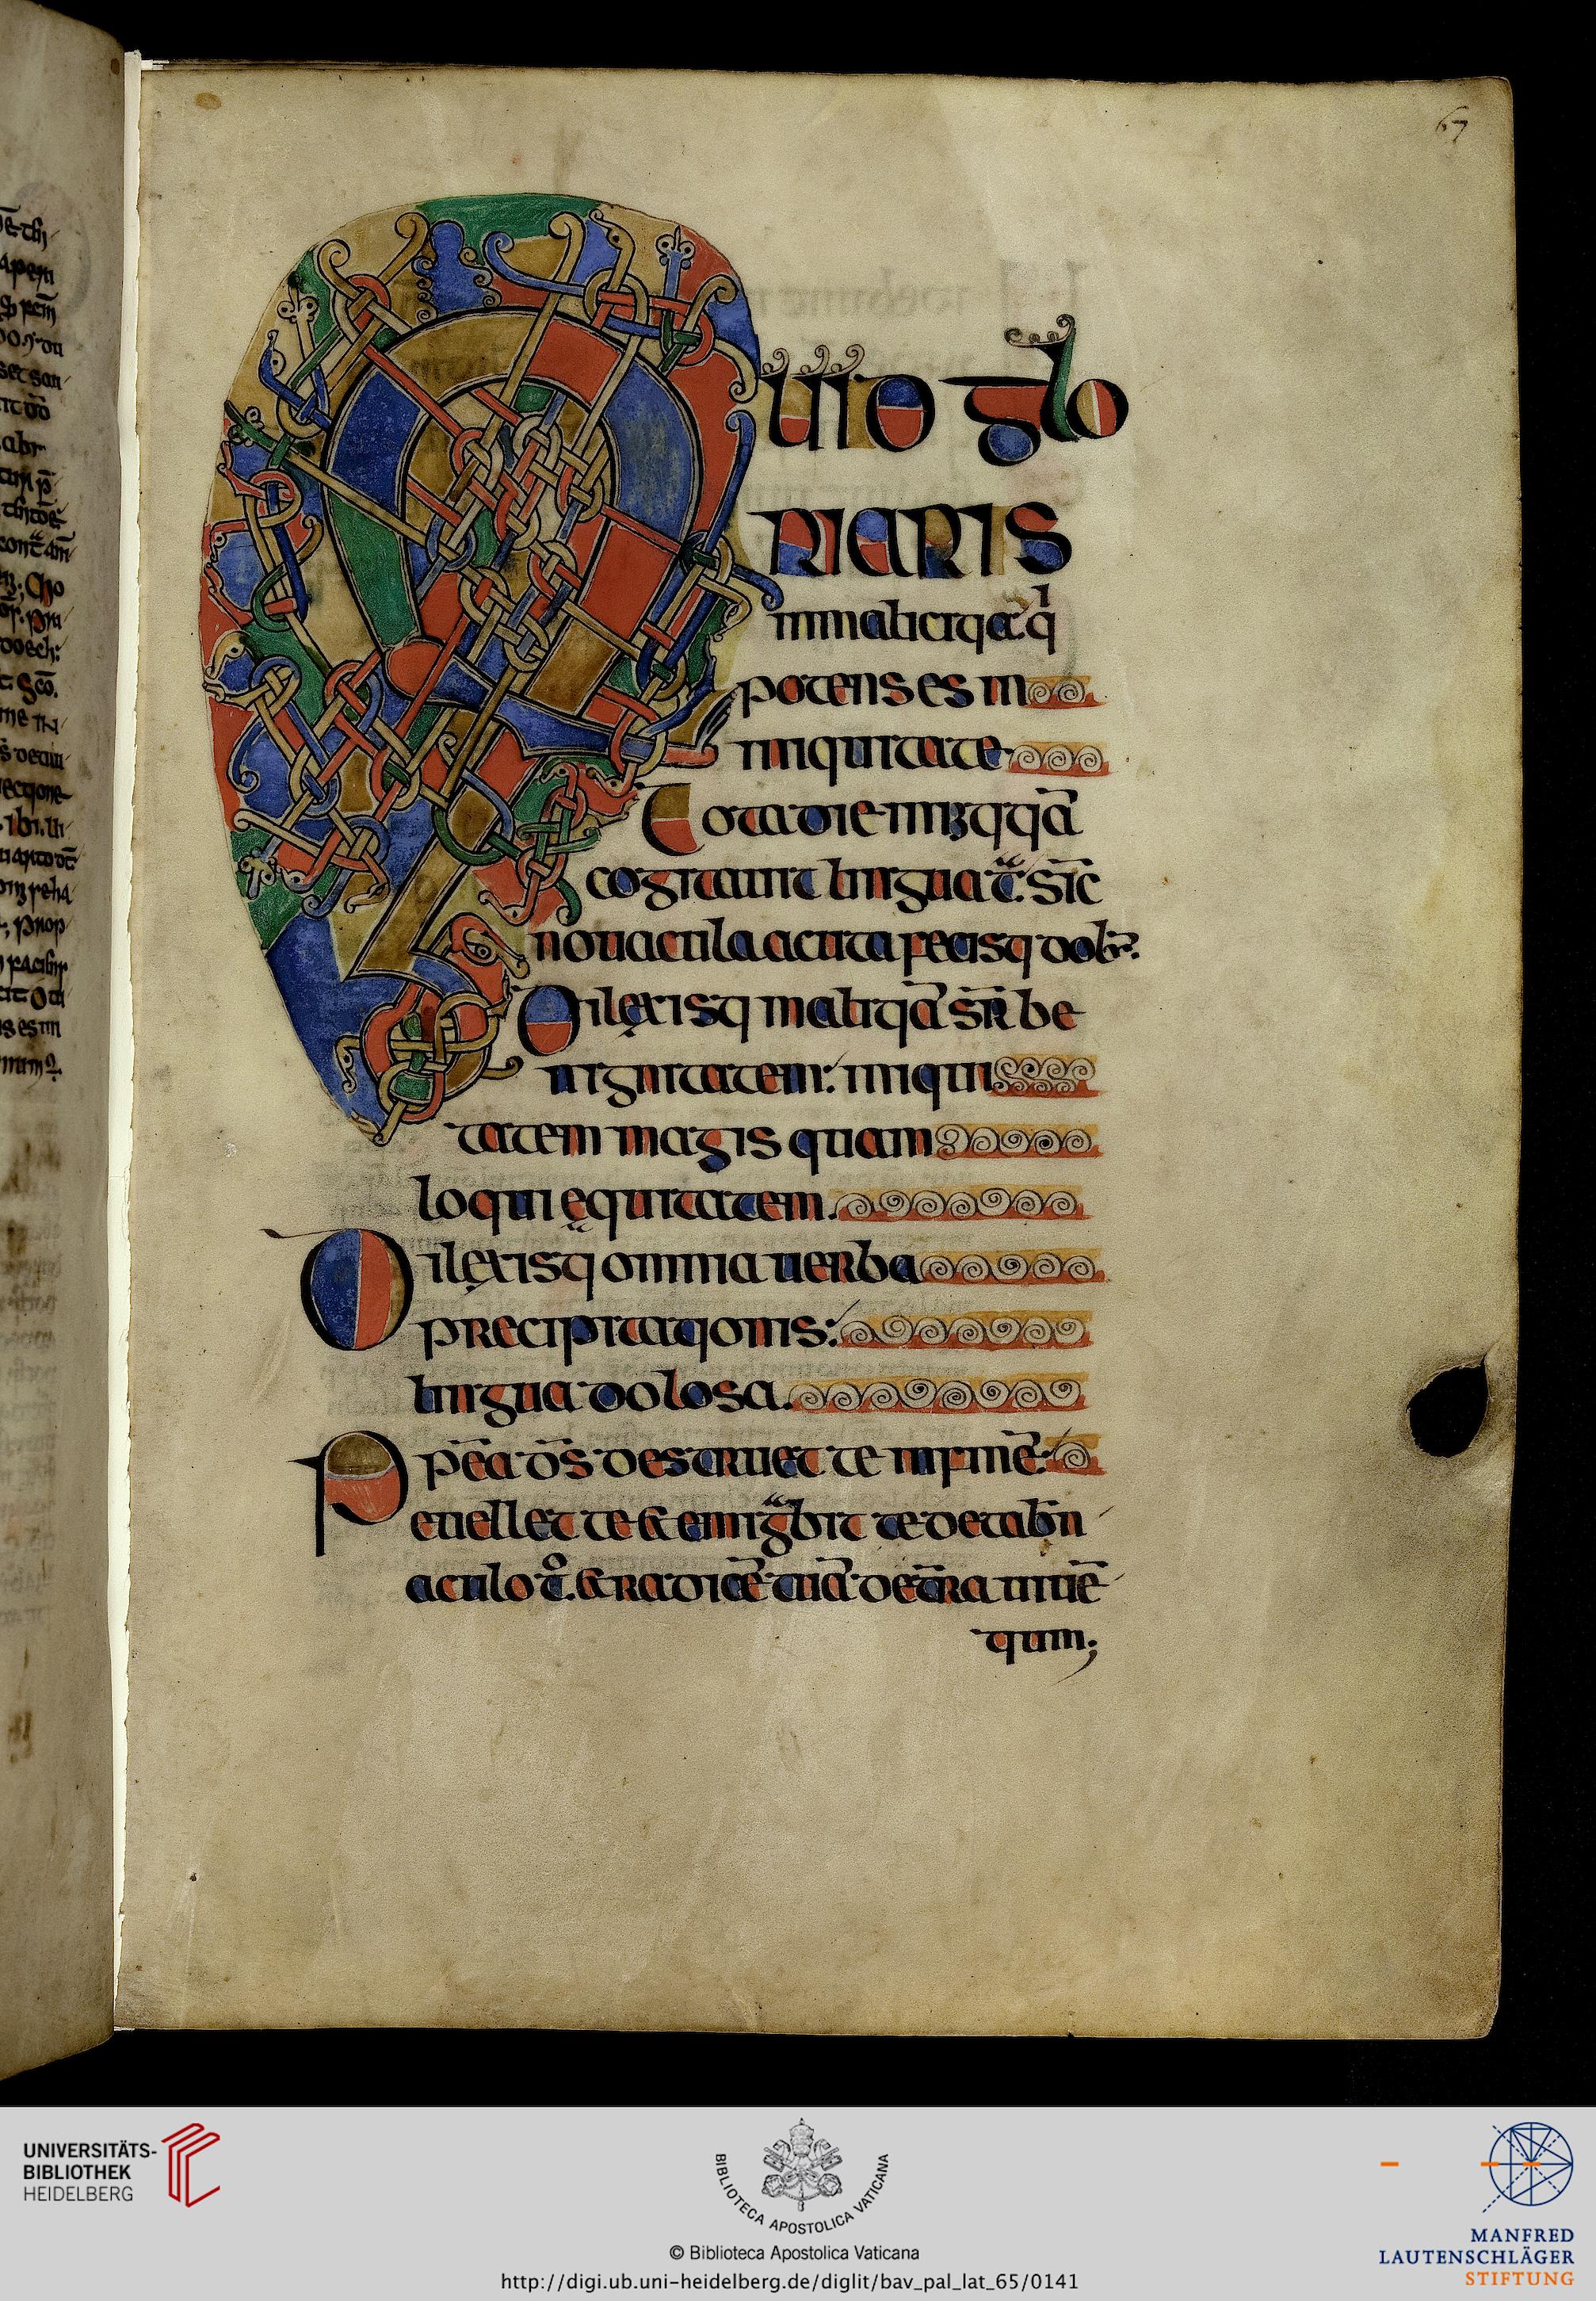 67
Quid glo
riaris
in malitia. qi
potens es in
iniquitate.
Tota die iniustitiā
cogitauit lingua ta. sic
nouacula acuta fecisti dolum.
Dilęxisti malitiā sr̄ be
nignitatem: iniqui
tatem magis quam
loqui ęquitatem.
Dilęxisti omnia uerba
precipitationis:
lingua dolosa.
Ppēa ds̄ destruet te in finē:
euellet te & emigabit te de tabn̄
aculo to. & radicē tuā de tr̄ra uiuē
tium;
UNIVERSITÄTS-
BIBLIOTHEK
HEIDELBERG
BIBLIOTECA APOSTOLICA VATICANA
© Biblioteca Apostolica Vaticana
http://digi.ub.uni-heidelberg.de/diglit/bav_pal_lat_65/0141
MANFRED
LAUTENSCHLÄGER
STIFTUNG